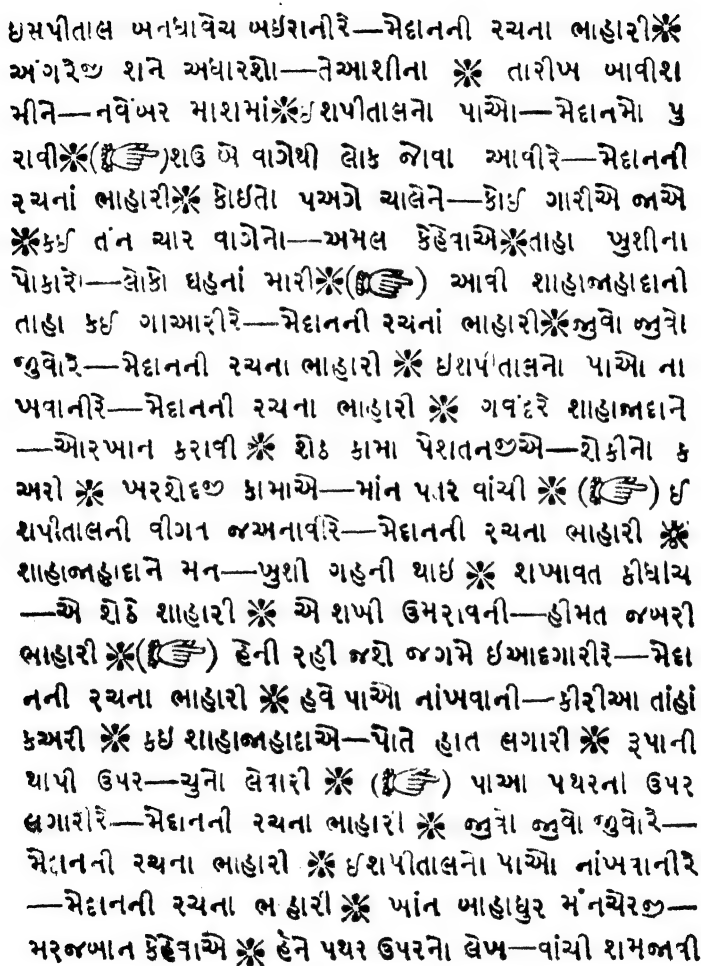 ઇસપીતાલ બનધાવેચ બઈરાનીરે—મેદાનની રચના ભાહારી❋
અંગરેજી શને અધારશો—તેઆશીના ❋ તારીખ બાવીશ
મીને—નવેંબર માશમાં❋ઈશપીતાલનો પાઓ—મેદાનમો પુ
રાવી❋(☞)શઉ બે વાગેથી લોક જોવા આવીરે—મેદાનની
રચનાં ભાહારી❋ કોઈતો પઅગે ચાલેને—કોઈ ગારીએ જાએ
❋કઈ તંન ચાર વાગેનો—અમલ કેહેવાએ❋તાહા ખુશીના
પોકારો—લોકો ઘહનાં મારી❋(☞) આવી શાહાજાહાદાની
તાહા કઈ ગાઆરીરે—મેદાનની રચનાં ભાહારી❋જુવો જુવો
જુવોરે—મેદાનની રચના ભાહારી ❋ ઇશપીતાલનો પાઓ ના
ખવાનીરે—મેદાનની રચના ભાહારી ❋ ગવંદરે શાહાજાદાને
—ઓરખાન કરાવી ❋ શેઠ કામા પેશતનજીએ—શોકીનો ક
અરો ❋ ખરશેદજી કામાએ—માંન પતર વાંચી ❋ (☞) ઈ
શપીતાલની વીગત જઅનાવીરે—મેદાનની રચના ભાહારી ❋
શાહાજાહાદાને મન—ખુશી ગહની થાઇ ❋ શખાવત કીધાચ
—એ શેઠે શાહારી ❋ એ શખી ઉમરાવની—હીમત જબરી
ભાહારી ❋(☞) હેની રહી જશે જગમે ઇઆદગારીરે—મેદા
નની રચના ભાહારી ❋ હવે પાઓ નાંખવાની—કીરીઆ તાંહાં
કઅરી ❋ કઇ શાહાજાહાદાએ—પોતે હાત લગારી ❋ રૂપાની
થાપી ઉપર—ચુનો લેવારી ❋ (☞) પાઆ પથરનાં ઉપર
લગારીરે—મેદાનની રચના ભાહારી ❋ જુવો જુવો જુવોરે—
મેદાનની રચના ભાહારી ❋ ઈશપીતાલનો પાઓ નાંખવાનીરે
—મેદાનની રચના ભાહારી ❋ ખાંન બાહાધુર મંનચેરજી—
મરજબાન કેહેવાએ ❋ હેને પથર ઉપરનો લેખ—વાંચી શમજાવી